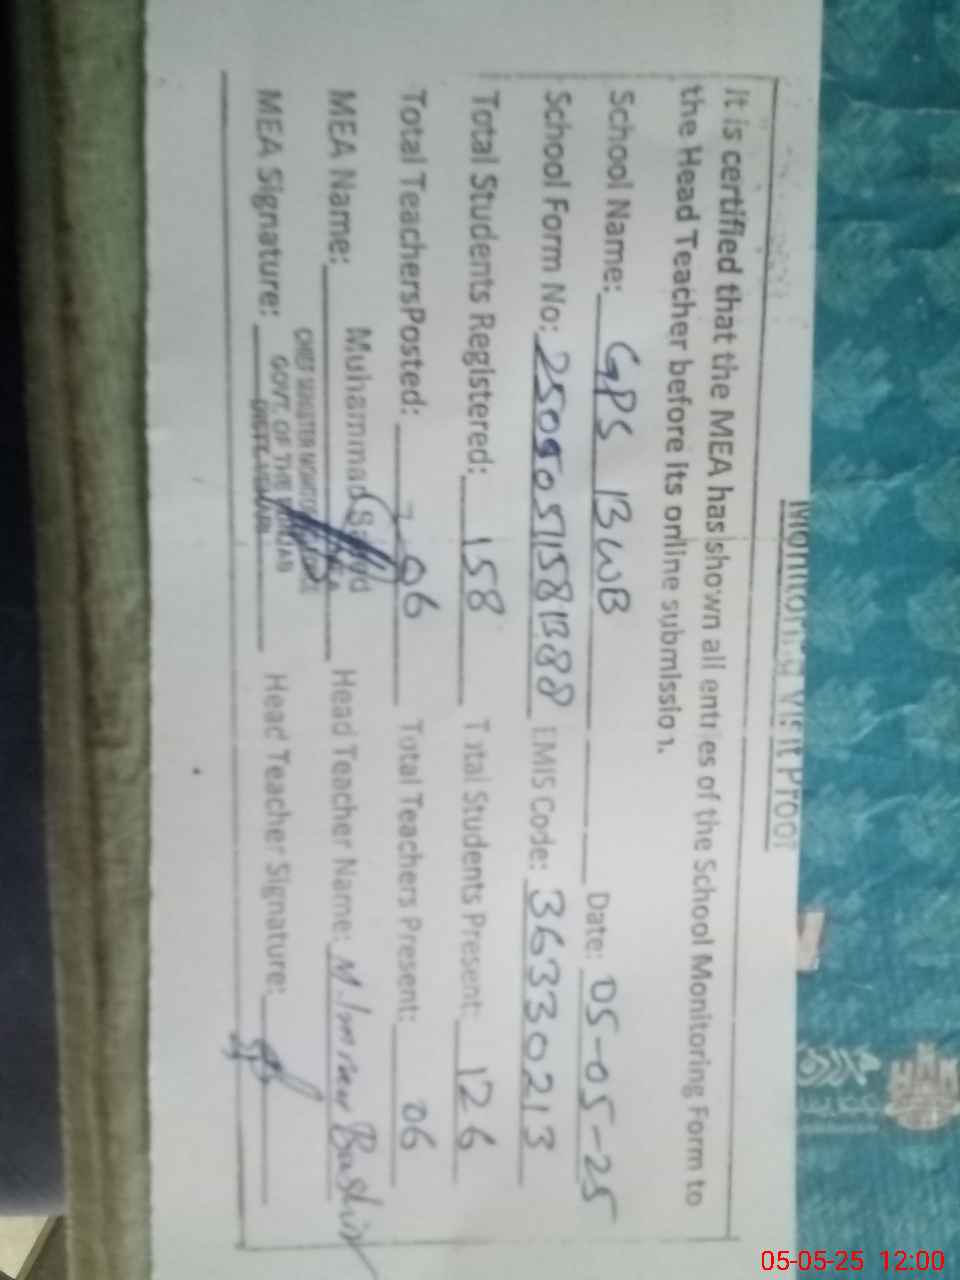 Monitoring Visit Proof
It is certified that the MEA has shown all entries of the School Monitoring Form to
the Head Teacher before its online submission.
School Name: GPS 13WB Date: 05-05-25
School Form No: EMIS Code: 36330213
Total Students Registered: 158 Total Students Present: 126
Total TeachersPosted: 06 Total Teachers Present: 06
MEA Name: Muhammad Head Teacher Name: M. Imran Bashir
MEA Signature: Head Teacher Signature:
GOVT. OF THE PUNJAB
05-05-25 12:00